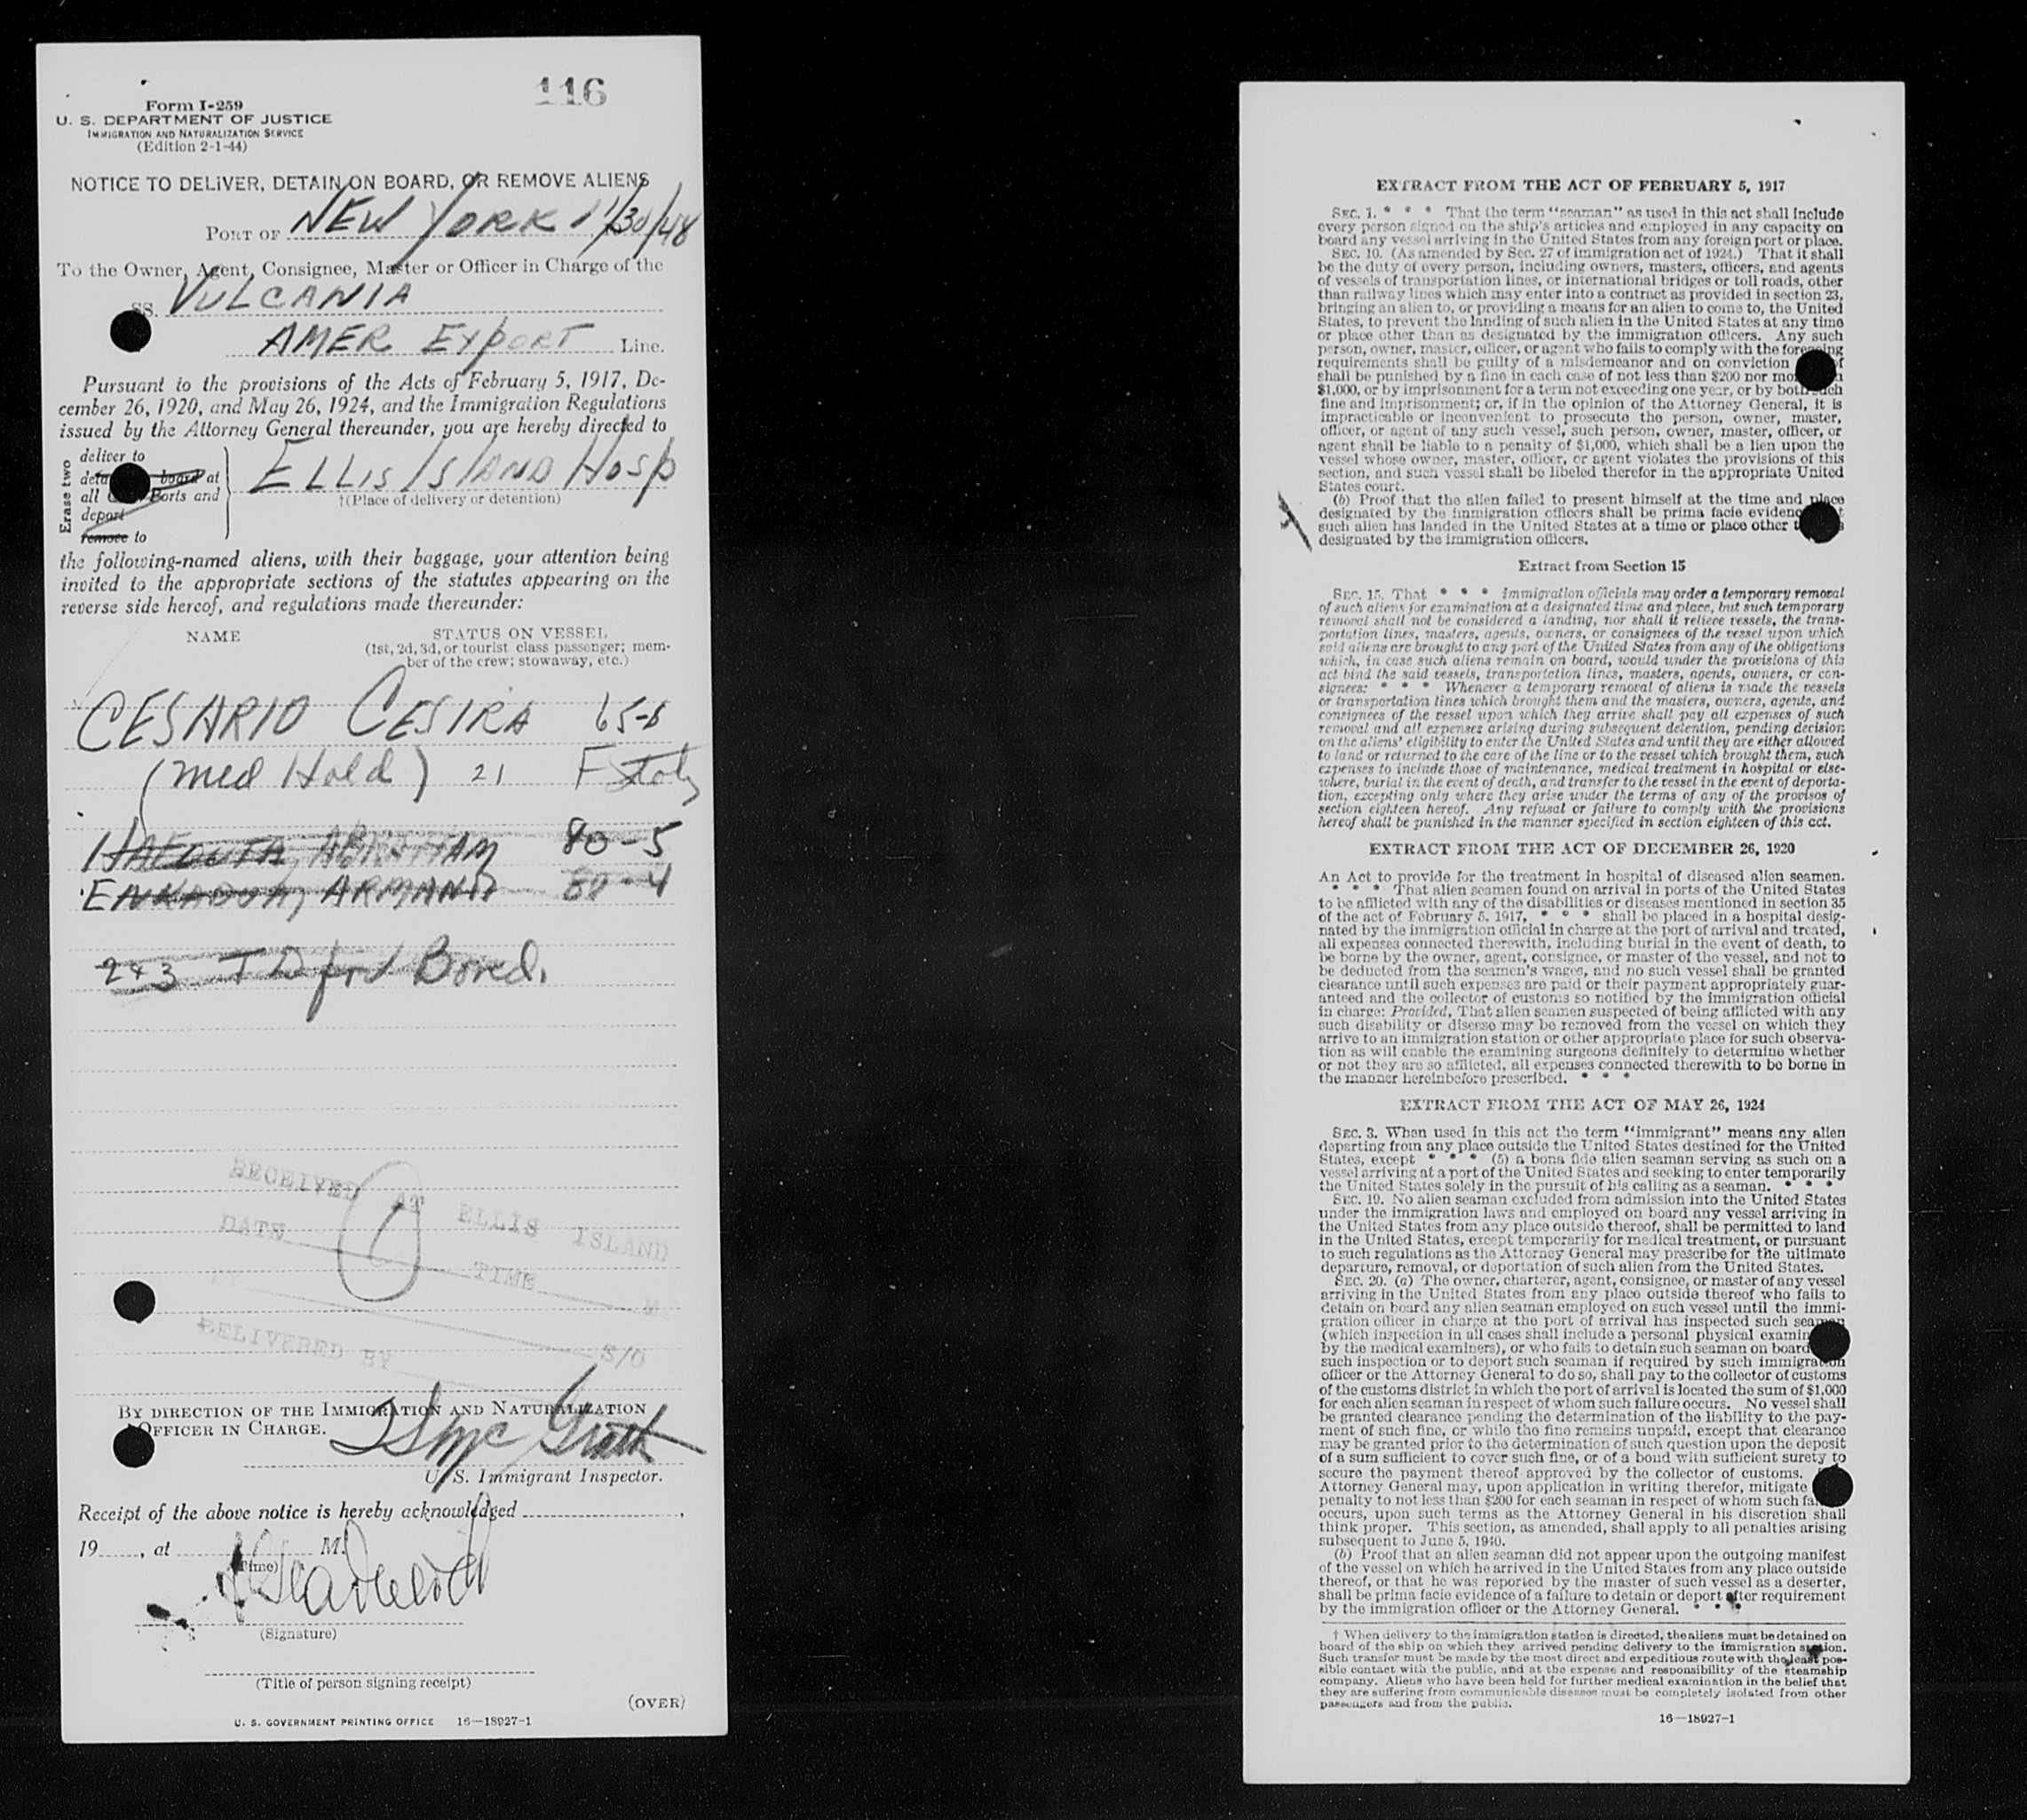 116
Form I-259
U. S. DEPARTMENT OF JUSTICE
IMMIGRATION AND NATURALIZATION SERVICE
(Edition 2-1-44)
NOTICE TO DELIVER, DETAIN ON BOARD, OR REMOVE ALIENS
PORT OF NEW YORK 11/30/48
To the Owner, Agent, Consignee, Master or Officer in Charge of the
SS. VULCANIA
AMER EXPORT Line.
Pursuant to the provisions of the Acts of February 5, 1917, De-
cember 26, 1920, and May 26, 1924, and the Immigration Regulations
issued by the Attorney General thereunder, you are hereby directed to
Erase two
deliver to
board at
all Ports and
deport
remove to
ELLIS ISLAND HOSP
†(Place of delivery or detention)
the following-named aliens, with their baggage, your attention being
invited to the appropriate sections of the statutes appearing on the
reverse side hereof, and regulations made thereunder:
NAME STATUS ON VESSEL
(1st, 2d, 3d, or tourist class passenger; mem-
ber of the crew; stowaway, etc.)
CESARIO CESIRA 65-
(Med Hold) 21 F Italy
80-5
ARMAND 80-4
RECEIVED AT ELLIS ISLAND
DATE TIME M
DELIVERED BY S/O
BY DIRECTION OF THE IMMIGRATION AND NATURALIZATION
OFFICER IN CHARGE.
U. S. Immigrant Inspector.
Receipt of the above notice is hereby acknowledged ,
19 , at M.
(Time)
(Signature)
(Title of person signing receipt)
(OVER)
U. S. GOVERNMENT PRINTING OFFICE 16—18927-1
EXTRACT FROM THE ACT OF FEBRUARY 5, 1917
SEC. 1. * * * That the term "seaman" as used in this act shall include
every person signed on the ship's articles and employed in any capacity on
board any vessel arriving in the United States from any foreign port or place.
SEC. 10. (As amended by Sec. 27 of immigration act of 1924.) That it shall
be the duty of every person, including owners, masters, officers, and agents
of vessels of transportation lines, or international bridges or toll roads, other
than railway lines which may enter into a contract as provided in section 23,
bringing an alien to, or providing a means for an alien to come to, the United
States, to prevent the landing of such alien in the United States at any time
or place other than as designated by the immigration officers. Any such
person, owner, master, officer, or agent who fails to comply with the foregoing
requirements shall be guilty of a misdemeanor and on conviction
shall be punished by a fine in each case of not less than $200 nor
$1,000, or by imprisonment for a term not exceeding one year, or by both such
fine and imprisonment; or, if in the opinion of the Attorney General, it is
impracticable or inconvenient to prosecute the person, owner, master,
officer, or agent of any such vessel, such person, owner, master, officer, or
agent shall be liable to a penalty of $1,000, which shall be a lien upon the
vessel whose owner, master, officer, or agent violates the provisions of this
section, and such vessel shall be libeled therefor in the appropriate United
States court.
(b) Proof that the alien failed to present himself at the time and place
designated by the immigration officers shall be prima facie
such alien has landed in the United States at a time or place other
designated by the immigration officers.
Extract from Section 15
SEC. 15. That * * * immigration officials may order a temporary removal
of such aliens for examination at a designated time and place, but such temporary
removal shall not be considered a landing, nor shall it relieve vessels, the trans-
portation lines, masters, agents, owners, or consignees of the vessel upon which
said aliens are brought to any port of the United States from any of the obligations
which, in case such aliens remain on board, would under the provisions of this
act bind the said vessels, transportation lines, masters, agents, owners, or con-
signees: * * * Whenever a temporary removal of aliens is made the vessels
or transportation lines which brought them and the masters, owners, agents, and
consignees of the vessel upon which they arrive shall pay all expenses of such
removal and all expenses arising during subsequent detention, pending decision
on the aliens' eligibility to enter the United States and until they are either allowed
to land or returned to the care of the line or to the vessel which brought them, such
expenses to include those of maintenance, medical treatment in hospital or else-
where, burial in the event of death, and transfer to the vessel in the event of deporta-
tion, excepting only where they arise under the terms of any of the provisos of
section eighteen hereof. Any refusal or failure to comply with the provisions
hereof shall be punished in the manner specified in section eighteen of this act.
EXTRACT FROM THE ACT OF DECEMBER 26, 1920
An Act to provide for the treatment in hospital of diseased alien seamen.
* * * That alien seamen found on arrival in ports of the United States
to be afflicted with any of the disabilities or diseases mentioned in section 35
of the act of February 5, 1917, * * * shall be placed in a hospital desig-
nated by the immigration official in charge at the port of arrival and treated,
all expenses connected therewith, including burial in the event of death, to
be borne by the owner, agent, consignee, or master of the vessel, and not to
be deducted from the seamen's wages, and no such vessel shall be granted
clearance until such expenses are paid or their payment appropriately guar-
anteed and the collector of customs so notified by the immigration official
in charge: Provided, That alien seamen suspected of being afflicted with any
such disability or disease may be removed from the vessel on which they
arrive to an immigration station or other appropriate place for such observa-
tion as will enable the examining surgeons definitely to determine whether
or not they are so afflicted, all expenses connected therewith to be borne in
the manner hereinbefore prescribed. * * *
EXTRACT FROM THE ACT OF MAY 26, 1924
SEC. 3. When used in this act the term "immigrant" means any alien
departing from any place outside the United States destined for the United
States, except * * * (5) a bona fide alien seaman serving as such on a
vessel arriving at a port of the United States and seeking to enter temporarily
the United States solely in the pursuit of his calling as a seaman. * * *
SEC. 19. No alien seaman excluded from admission into the United States
under the immigration laws and employed on board any vessel arriving in
the United States from any place outside thereof, shall be permitted to land
in the United States, except temporarily for medical treatment, or pursuant
to such regulations as the Attorney General may prescribe for the ultimate
departure, removal, or deportation of such alien from the United States.
SEC. 20. (a) The owner, charterer, agent, consignee, or master of any vessel
arriving in the United States from any place outside thereof who fails to
detain on board any alien seaman employed on such vessel until the immi-
gration officer in charge at the port of arrival has inspected such seaman
(which inspection in all cases shall include a personal physical
by the medical examiners), or who fails to detain such seaman on board
such inspection or to deport such seaman if required by such immigration
officer or the Attorney General to do so, shall pay to the collector of customs
of the customs district in which the port of arrival is located the sum of $1,000
for each alien seaman in respect of whom such failure occurs. No vessel shall
be granted clearance pending the determination of the liability to the pay-
ment of such fine, or while the fine remains unpaid, except that clearance
may be granted prior to the determination of such question upon the deposit
of a sum sufficient to cover such fine, or of a bond with sufficient surety to
secure the payment thereof approved by the collector of customs.
Attorney General may, upon application in writing therefor, mitigate
penalty to not less than $200 for each seaman in respect of whom such
occurs, upon such terms as the Attorney General in his discretion shall
think proper. This section, as amended, shall apply to all penalties arising
subsequent to June 5, 1940.
(b) Proof that an alien seaman did not appear upon the outgoing manifest
of the vessel on which he arrived in the United States from any place outside
thereof, or that he was reported by the master of such vessel as a deserter,
shall be prima facie evidence of a failure to detain or deport after requirement
by the immigration officer or the Attorney General. * * *
† When delivery to the immigration station is directed, the aliens must be detained on
board of the ship on which they arrived pending delivery to the immigration station.
Such transfer must be made by the most direct and expeditious route with the least pos-
sible contact with the public, and at the expense and responsibility of the steamship
company. Aliens who have been held for further medical examination in the belief that
they are suffering from communicable diseases must be completely isolated from other
passengers and from the public.
16—18927-1